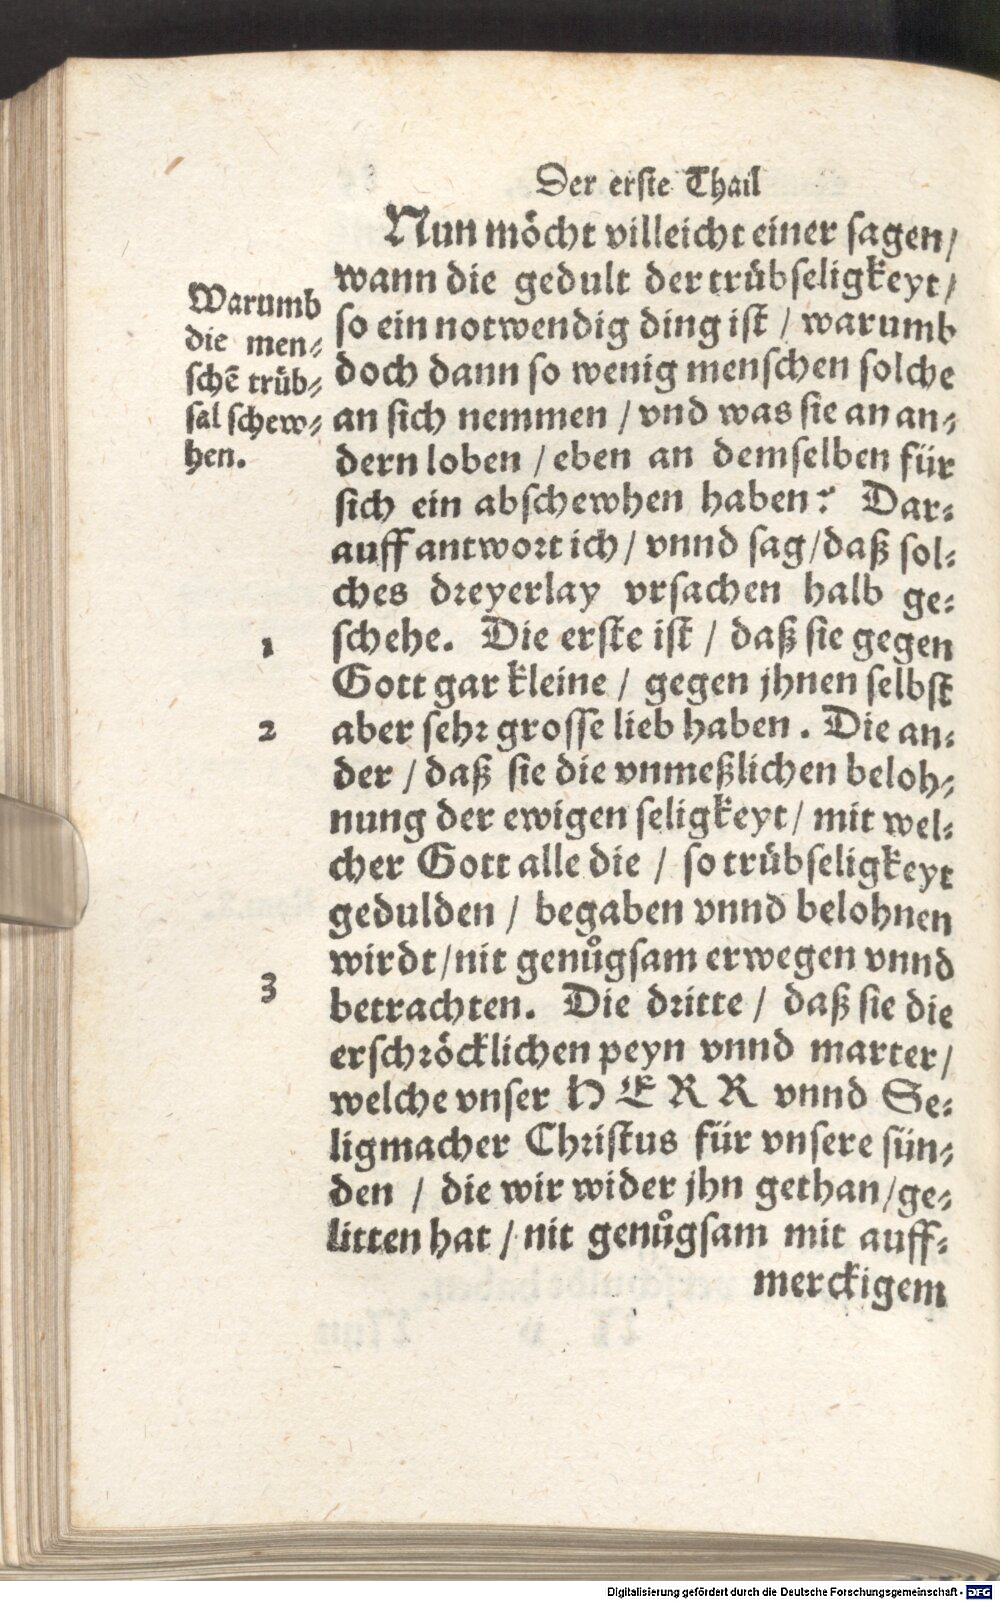 Der erste Thail
Nun möcht villeicht einer sagen/
wann die gedult der trübseligkeyt/
so ein notwendig ding ist / warumb
doch dann so wenig menschen solche
an sich nemmen / vnd was sie an an-
dern loben / eben an demselben für
sich ein abschewhen haben? Dar-
auff antwort ich / vnnd sag / daß sol-
ches dreyerlay vrsachen halb ge-
schehe. Die erste ist / daß sie gegen
Gott gar kleine / gegen jhnen selbst
aber sehr grosse lieb haben. Die an-
der / daß sie die vnmeßlichen beloh-
nung der ewigen seligkeyt / mit wel-
cher Gott alle die / so trübseligkeyt
gedulden / begaben vnnd belohnen
wirdt / nit genůgsam erwegen vnnd
betrachten. Die dritte / daß sie die
erschröcklichen peyn vnnd marter /
welche vnser HERR vnnd Se-
ligmacher Christus für vnsere sün-
den / die wir wider jhn gethan / ge-
litten hat / nit genůgsam mit auff-
merckigem
Warumb
die men-
schē trüb-
sal schew-
hen.
1
2
3
Digitalisierung gefördert durch die Deutsche Forschungsgemeinschaft - DFG